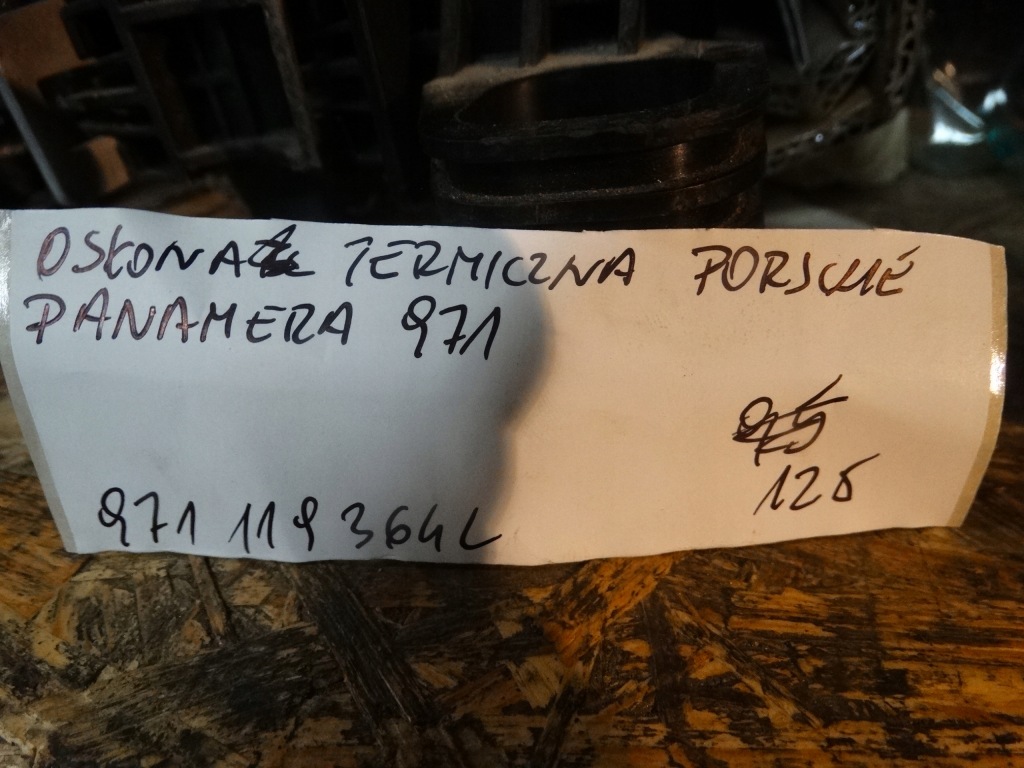 OSŁONA TERMICZNA PORSCHE
PANAMERA 971
125
971 119 364L